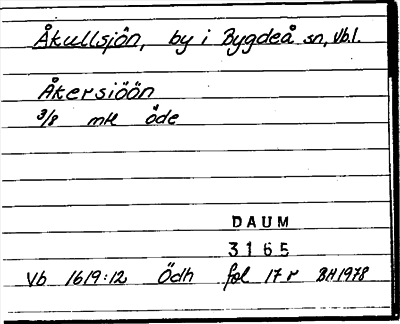 Åkullsjön, by i Bygdeå sn, Vb.l.
Åkersiöön
3/8 mtl öde
DAUM
3165
Vb 1619:12 Ödh fol 17 r BH 1978